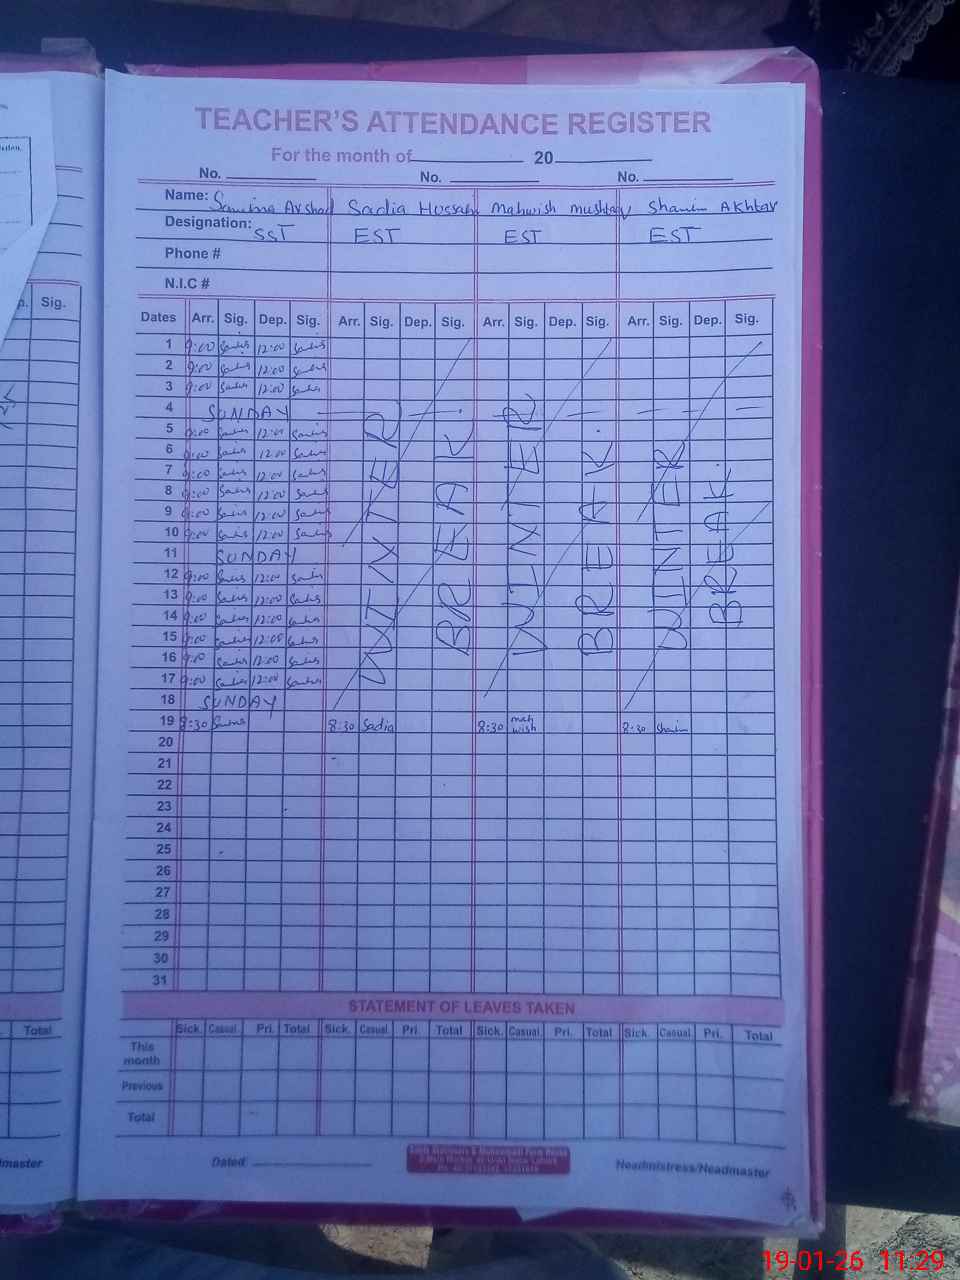 TEACHER'S ATTENDANCE REGISTER
For the month of 20
No. No. No.
Name: Samina Arshad Sadia Hussain Mahwish mushtaq Shamim Akhtar
Designation: SST EST EST EST
Phone #
N.I.C #
Sig.
Dates Arr. Sig. Dep. Sig. Arr. Sig. Dep. Sig. Arr. Sig. Dep. Sig. Arr. Sig. Dep. Sig.
1 9:00 12:00
2 9:00 12:00
3 9:00 12:00
4 SUNDAY
5 9:00 12:00
6 9:00 12:00
7 9:00 12:00
8 9:00 12:00
9 9:00 12:00
10 9:00 12:00
11 SUNDAY
12 9:00 12:00
13 9:00 12:00
14 9:00 12:00
15 9:00 12:00
16 9:00 12:00
17 9:00 12:00
18 SUNDAY
WINTER BREAK. WINTER BREAK. WINTER BREAK.
19 8:30 8:30 Sadia 8:30 mah wish 8:30
20
21
22
23
24
25
26
27
28
29
30
31
STATEMENT OF LEAVES TAKEN
Total Sick. Casual. Pri. Total Sick. Casual. Pri. Total Sick. Casual. Pri. Total Sick. Casual. Pri. Total
This month
Previous
Total
Dated:
Headmistress/Headmaster
19-01-26 11:29